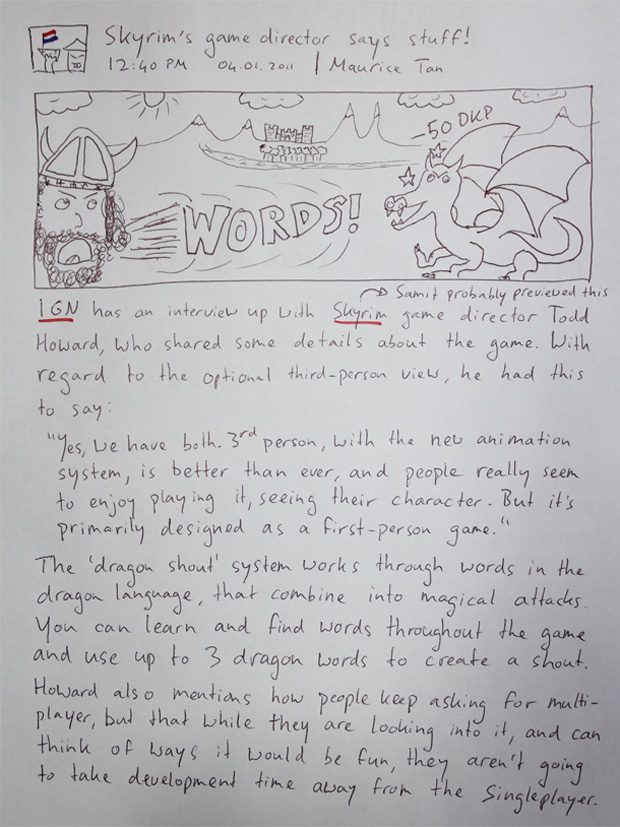 Skyrim's game director says stuff!
12:40 PM 04.01.2011 | Maurice Tan
-50 DKP
WORDS!
Samit probably previewed this
IGN has an interview up with Skyrim game director Todd
Howard, who shared some details about the game. With
regard to the optional third-person view, he had this
to say:
"Yes, we have both. 3rd person, with the new animation
system, is better than ever, and people really seem
to enjoy playing it, seeing their character. But it's
primarily designed as a first-person game."
The 'dragon shout' system works through words in the
dragon language, that combine into magical attacks.
You can learn and find words throughout the game
and use up to 3 dragon words to create a shout.
Howard also mentions how people keep asking for multi-
player, but that while they are looking into it, and can
think of ways it would be fun, they aren't going
to take development time away from the Singleplayer.